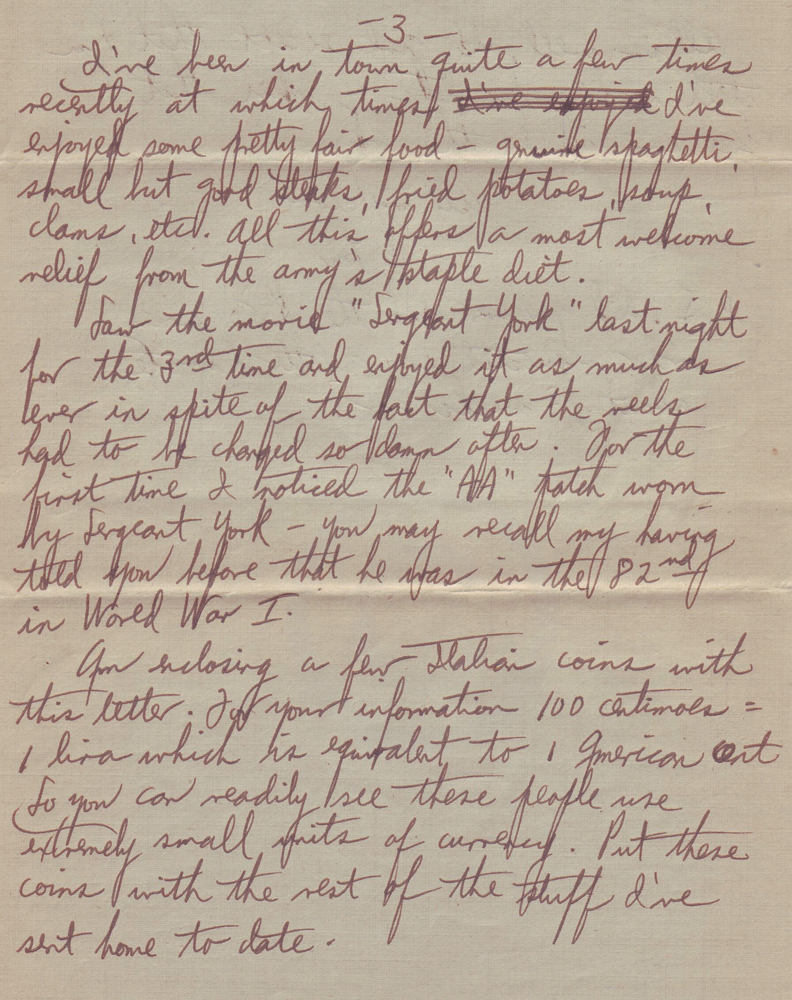 - 3 -
I've been in town quite a few times
recently at which times I've enjoyed I've
enjoyed some pretty fair food - genuine spaghetti,
small but good steaks, fried potatoes, soup,
clams, etc. All this offers a most welcome
relief from the army's staple diet.
Saw the movie "Sergeant York" last night
for the 3rd time and enjoyed it as much as
ever in spite of the fact that the reels
had to be changed so damn often. For the
first time I noticed the "AA" patch worn
by Sergeant York - you may recall my having
told you before that he was in the 82nd
in World War I.
Am enclosing a few Italian coins with
this letter. For your information 100 centimoes =
1 lira which is equivalent to 1 American cent
So you can readily see these people use
extremely small units of currency. Put these
coins with the rest of the stuff I've
sent home to date.